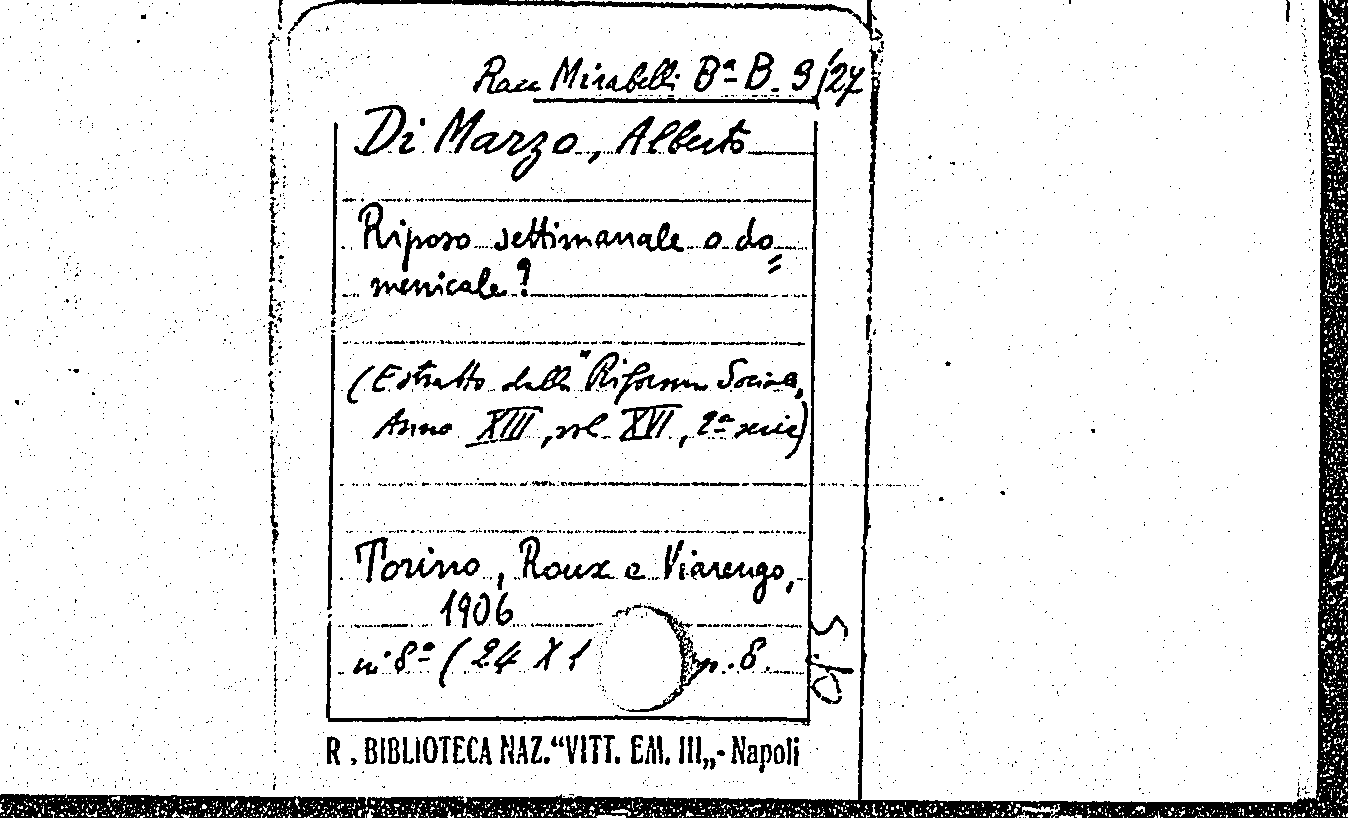 Racc Mirabelli Bª B. 9/27
Di Marzo, Alberto
Riposo settimanale o do=
menicale?
(Estratto dalla "Riforma Sociale,
Anno XIII, vol XVI, 2ª serie)
Torino, Roux e Viarengo,
1906
in 8º (24 X 1 p. 8.
R. BIBLIOTECA NAZ. “VITT. EM. III„ - Napoli